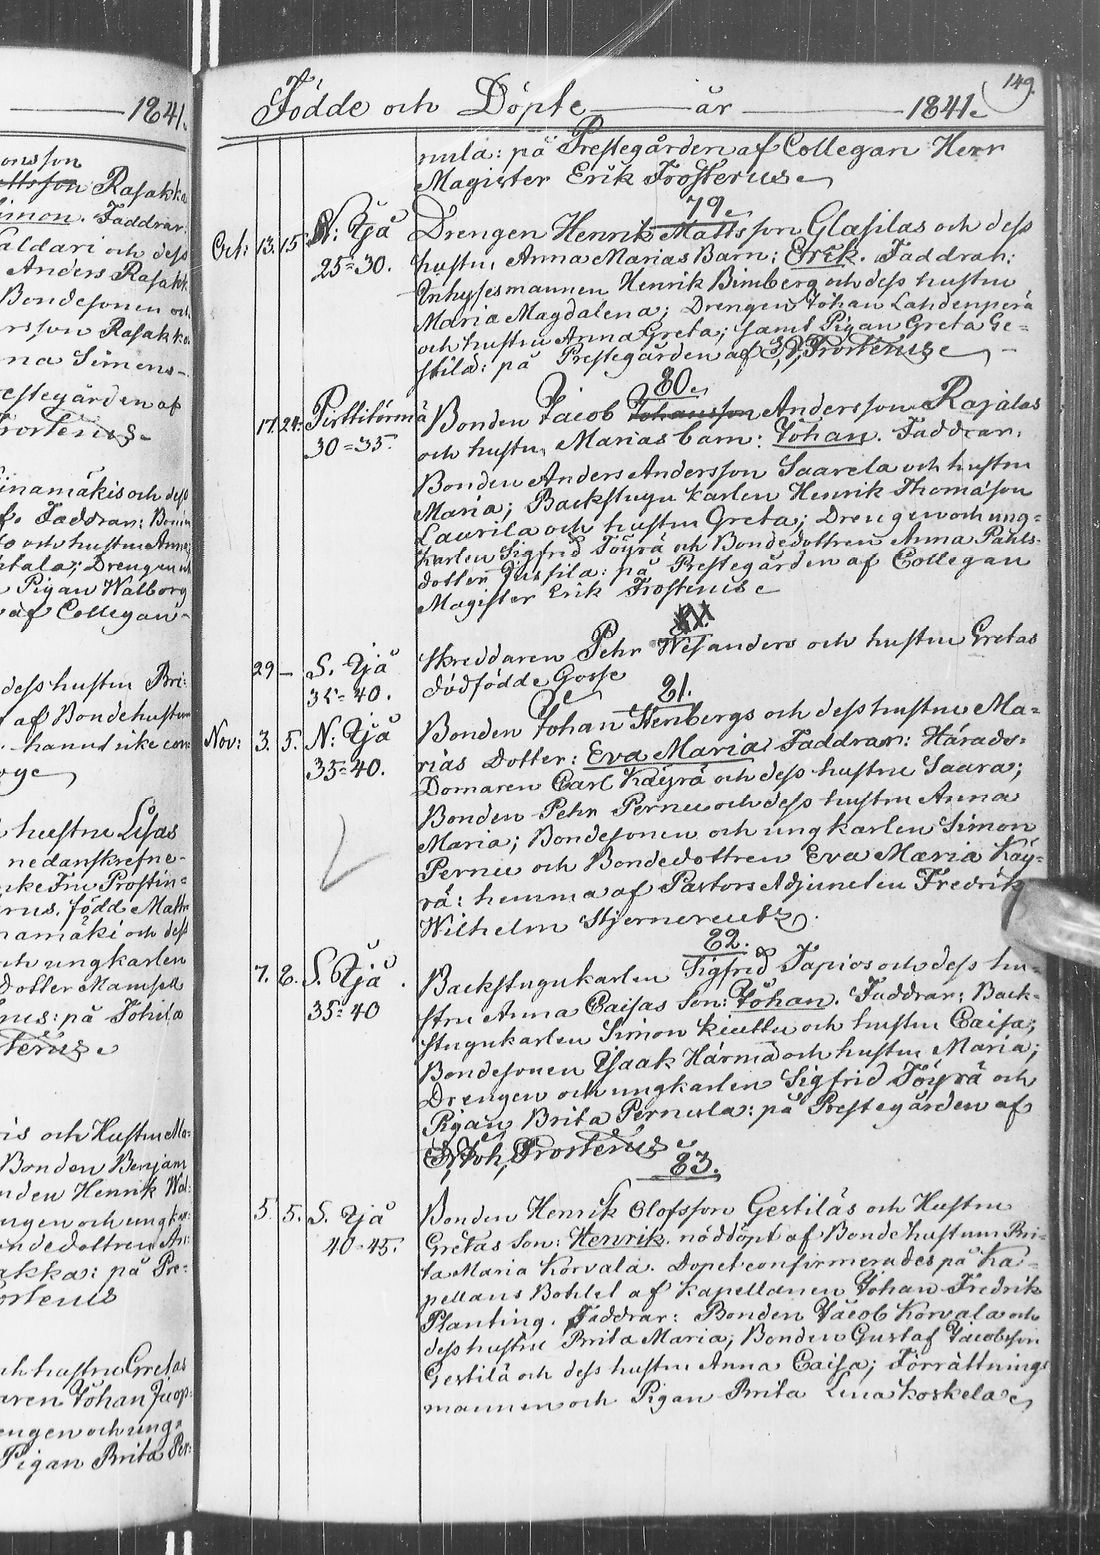 1841.
onsson
Rasakka
imon. Faddrar:
aldari och dess
Anders Rasakk
Bondesonen och
rsson Rasakka
na Simens-
restegården af
rosterus
inamäkis och dess
Faddrar: Bonin
och hustru Anna;
tala; Drengen och
Pigan Walborg
af Collegan
dess hustru Bri-
af Bondehustrun
hanns icke con
oge
hustru Lisas
nedanskrefne-
född Matts
namäki och dess
och ungkarlen
dotter Mamsell
nus: på Tohila
terus
is och Hustru Ma-
Bonden Benjam
nden Henrik Wal-
ngen och ungkar-
ondedottren An:
akka: på Pre-
osterus
ch hustru Gretas
aren Johan Jacop-
engen och ung-
Pigan Brita Per-
149.
Födde och Döpte år 1841.
nula: på Prestegården af Collegan Herr
Magister Erik Frosterus
79.
Oct: 13. 15. N: Ijå Drengen Henrik Mattsson Glasilas och dess
25=30. hustru Anna Marias Barn: Erik. Faddrar:
Inhysesmannen Henrik Bimberg och dess hustru
Maria Magdalena; Drengen Johan Lahdenperä
och hustru Anna Greta; samt Pigan Greta Ge-
stilä: på Prestegården af Frosterus
80.
17. 24. Pirttitörmä Bonden Jacob Johansson Andersson Rajalas
30=35. och hustru Marias barn: Johan. Faddrar:
Bonden Anders Andersson Saarela och hustru
Maria; Backstugu karlen Henrik Thomasson
Laurila och hustru Greta; Drengen och ung-
karlen Sigfrid Töyrä och Bondedottren Anna Pahls-
dotter Justila: på Prestegården af Collegan
Magister Erik Frosterus
29 – S. Ijå Skreddaren Pehr Wesanders och hustru Gretas
35=40. dödfödde Gosse
81.
Nov: 3. 5. N: Ijå Bonden Johan Stenbergs och dess hustru Ma-
35=40. rias Dotter: Eva Maria Faddrar: Härads-
Domaren Carl Käyrä och dess hustru Saara;
Bonden Pehr Pernu och dess hustru Anna
Maria; Bondesonen och ungkarlen Simon
Pernu och Bondedottren Eva Maria Käy-
rä: hemma af Pastors Adjuncten Fredrik
Wilhelm Stjerncreutz.
82.
7. 8. S. Ijå. Backstugukarlen Sigfrid Tapios och dess hu-
35=40 stru Anna Caisas Son: Johan. Faddrar: Back-
stugukarlen Simon Kiuttu och hustru Caisa;
Bondesonen Isaak Härmä och hustru Maria;
Drengen och ungkarlen Sigfrid Töyrä och
Pigan Brita Pernula: på Prestegården af
Joh, Frosterus
83.
5. 5. S. Ijå Bonden Henrik Olofsson Gestiläs och Hustru
40-45. Gretas Son: Henrik. nöddöpt af Bondehustrun Bri-
ta Maria Korvala. Dopet confirmerades på Ka-
pellans Bohlet af Kapellanen Johan Fredrik
Planting. Faddrar: Bonden Jacob Korvala och
dess hustru Brita Maria; Bonden Gustaf Jacobsson
Gestilä och dess hustru Anna Caisa; Förrättnings
mannen och Pigan Brita Lena Koskela